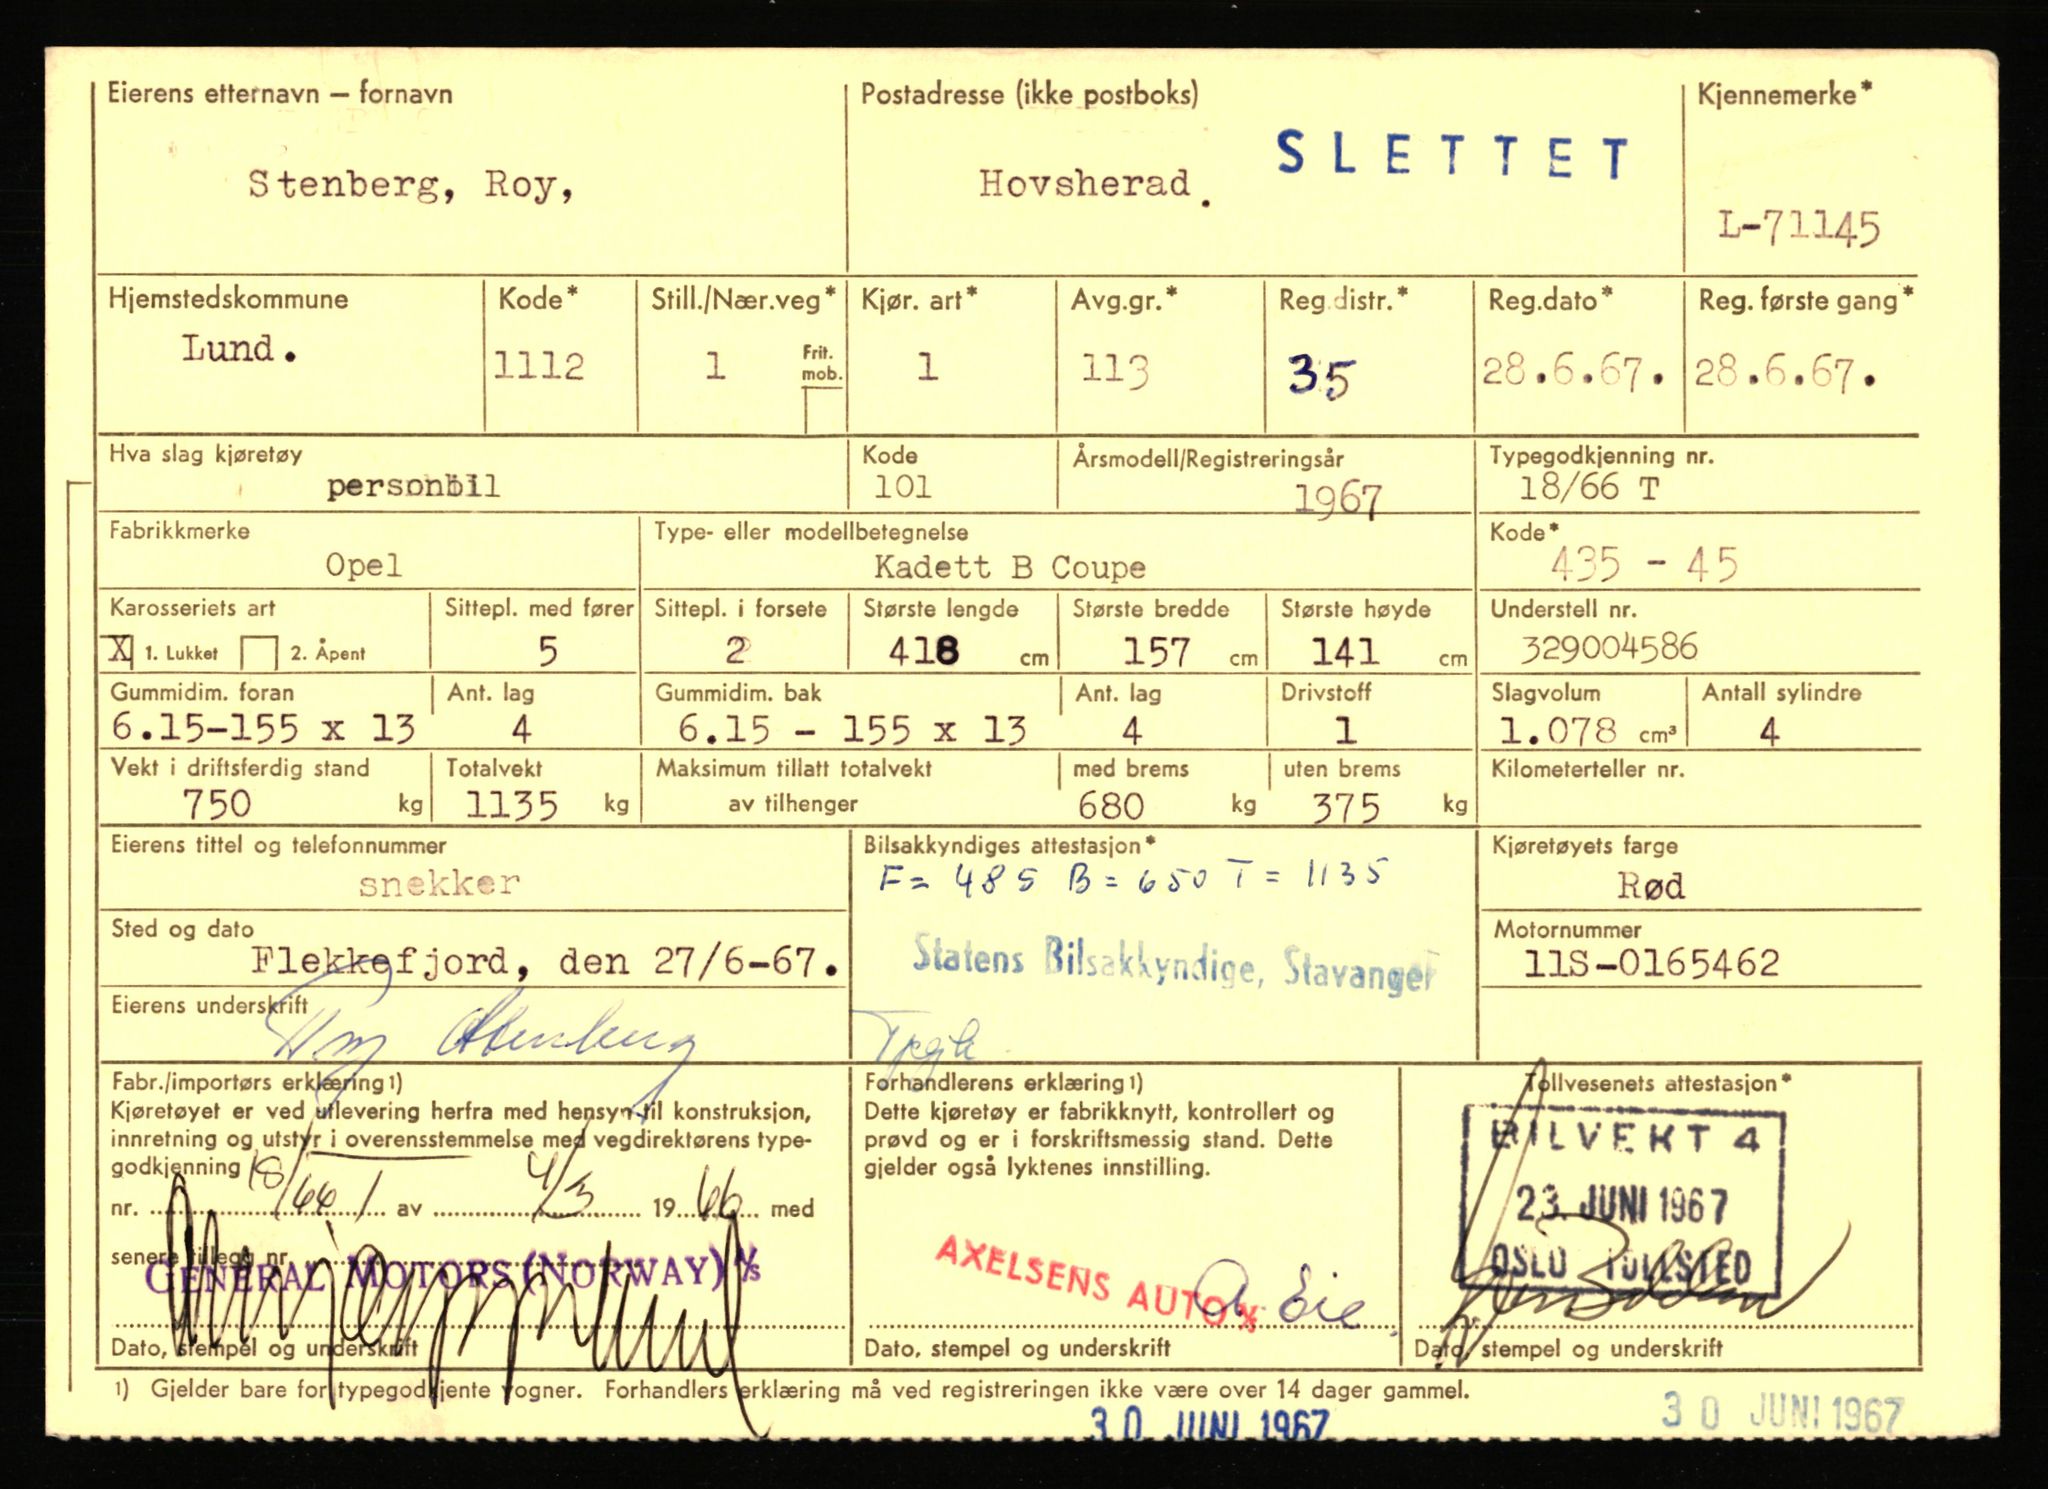 Eierens etternavn – fornavn
Stenberg, Roy,
Postadresse (ikke postboks)
Hovsherad.
SLETTET
Kjennemerke*
L-71145
Hjemstedskommune
Lund.
Kode*
1112
Still./Nær.veg*
1
Frit. mob.
Kjør. art*
1
Avg.gr.*
113
Reg.distr.*
35
Reg.dato*
28.6.67.
Reg. første gang*
28.6.67.
Hva slag kjøretøy
personbil
Kode
101
Årsmodell/Registreringsår
1967
Typegodkjenning nr.
18/66 T
Fabrikkmerke
Opel
Type- eller modellbetegnelse
Kadett B Coupe
Kode*
435 - 45
Karosseriets art
X 1. Lukket 2. Åpent
Sittepl. med fører
5
Sittepl. i forsete
2
Største lengde
418 cm
Største bredde
157 cm
Største høyde
141 cm
Understell nr.
329004586
Gummidim. foran
6.15-155 x 13
Ant. lag
4
Gummidim. bak
6.15 - 155 x 13
Ant. lag
4
Drivstoff
1
Slagvolum
1.078 cm³
Antall sylindre
4
Vekt i driftsferdig stand
750 kg
Totalvekt
1135 kg
Maksimum tillatt totalvekt
av tilhenger
med brems
680 kg
uten brems
375 kg
Kilometerteller nr.
Eierens tittel og telefonnummer
snekker
Bilsakkyndiges attestasjon*
F= 485 B= 650 T= 1135
Statens Bilsakkyndige, Stavanger
Kjøretøyets farge
Rød
Sted og dato
Flekkefjord, den 27/6-67.
Motornummer
11S-0165462
Eierens underskrift
Roy Stenberg
Fabr./importørs erklæring 1)
Kjøretøyet er ved utlevering herfra med hensyn til konstruksjon,
innretning og utstyr i overensstemmelse med vegdirektørens type-
godkjenning
nr. 18/66 T av 4/3 1966 med
senere tillegg nr.
GENERAL MOTORS (NORWAY) A/S
Dato, stempel og underskrift
Forhandlerens erklæring 1)
Dette kjøretøy er fabrikknytt, kontrollert og
prøvd og er i forskriftsmessig stand. Dette
gjelder også lyktenes innstilling.
AXELSENS AUTO A/S
Dato, stempel og underskrift
Tollvesenets attestasjon*
BILVEKT 4
23. JUNI 1967
OSLO TOLLSTED
Dato, stempel og underskrift
1) Gjelder bare for typegodkjente vogner. Forhandlers erklæring må ved registreringen ikke være over 14 dager gammel.
30 JUNI 1967
30 JUNI 1967